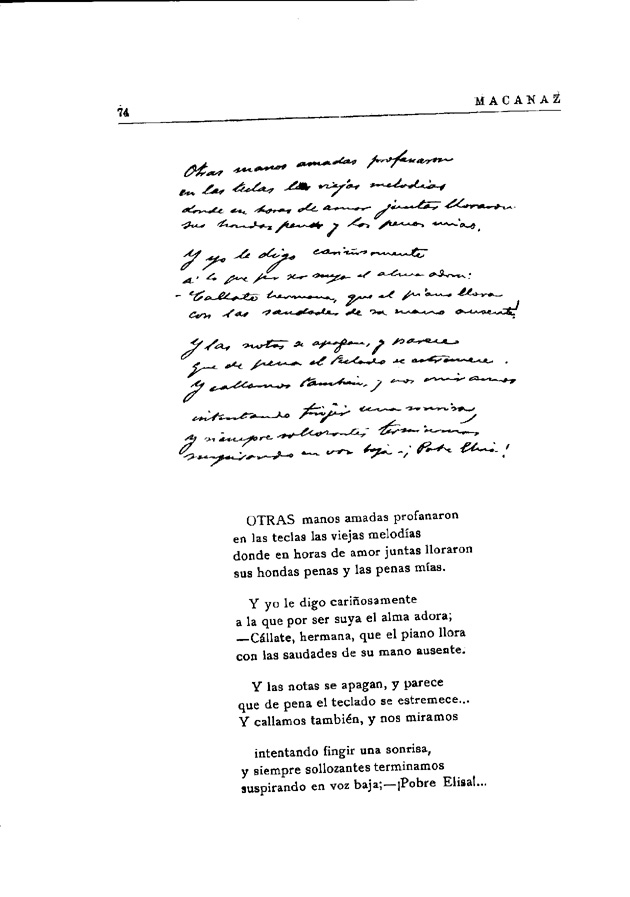 74
MACANAZ
Otras manos amadas profanaron
en las teclas las viejas melodías
donde en horas de amor juntas lloraron
sus hondas penas y las penas mías.
Y yo le digo cariñosamente
a la que por ser suya el alma adora:
- Callate hermana, que el piano llora
con las saudades de su mano ausente!
Y las notas se apagan, y parece
que de pena el teclado se estremece.
Y callamos también, y nos miramos
intentando fingir una sonrisa,
y siempre sollozantes terminamos
suspirando en voz baja -¡Pobre Elisa!
OTRAS manos amadas profanaron
en las teclas las viejas melodías
donde en horas de amor juntas lloraron
sus hondas penas y las penas mías.
Y yo le digo cariñosamente
a la que por ser suya el alma adora;
—Cállate, hermana, que el piano llora
con las saudades de su mano ausente.
Y las notas se apagan, y parece
que de pena el teclado se estremece...
Y callamos también, y nos miramos
intentando fingir una sonrisa,
y siempre sollozantes terminamos
suspirando en voz baja;—¡Pobre Elisa!...